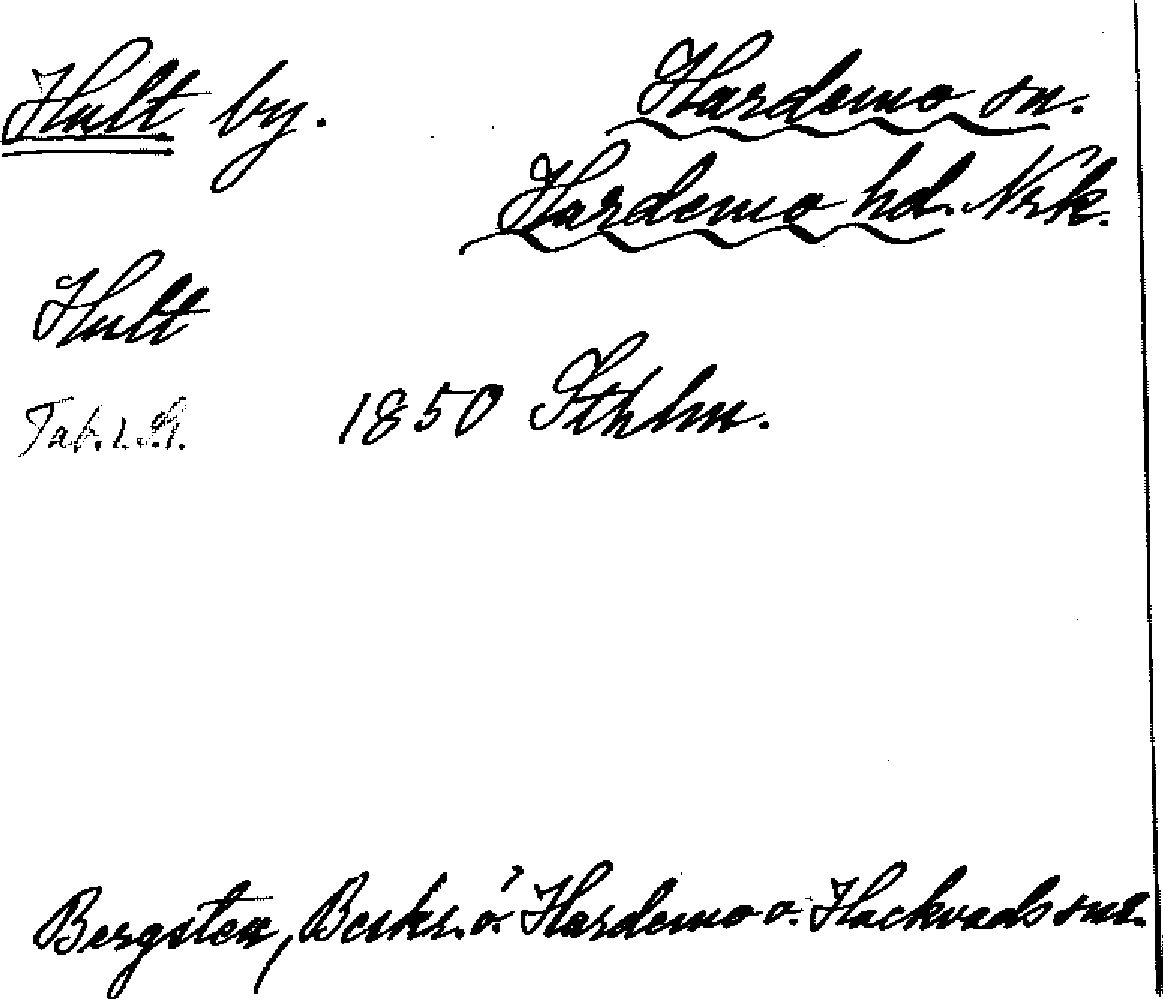 Hult by. Hardemo sn.
Hardemo hd. Nrk.
Hult
1850 Sthlm.
Bergsten, Beskr. ö. Hardemo o. Hackvads snr.